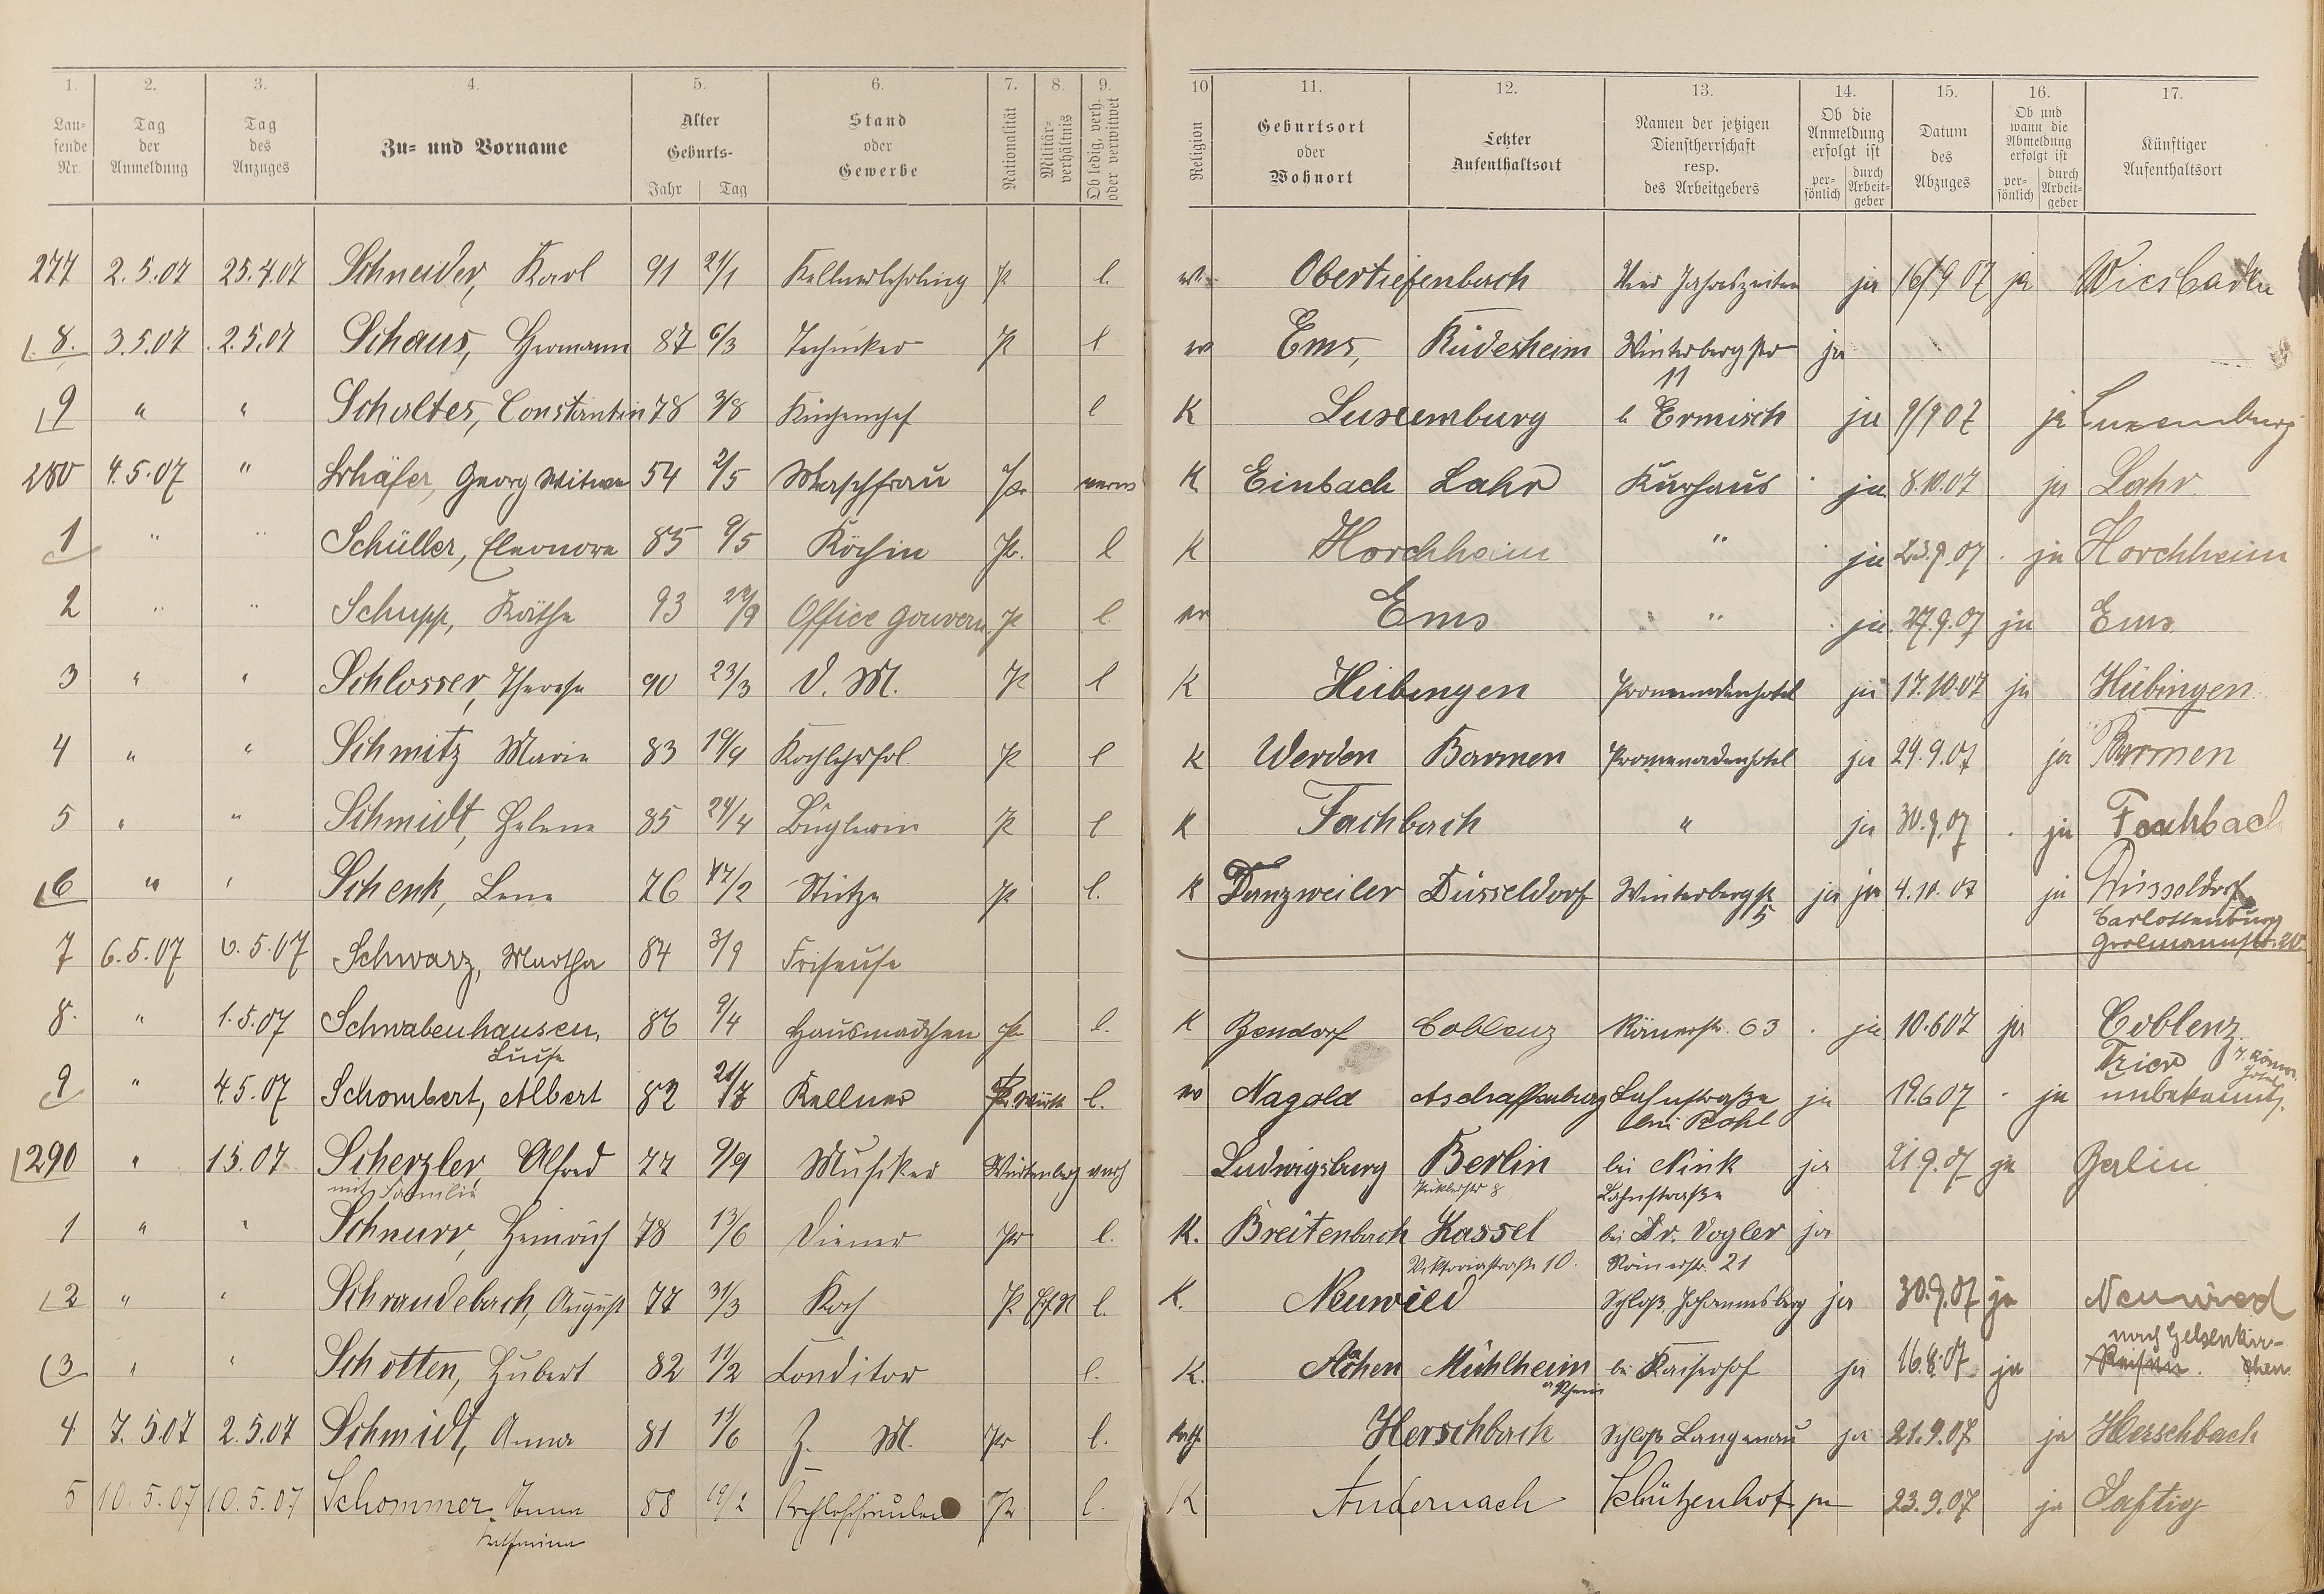 1. 2. 3. 4. 5. 6. 7. 8. 9. 10 11. 12. 13. 14. 15. 16. 17.
Lau-fende Nr. | Tag der Anmeldung | Tag des Anzuges | Zu- und Vorname | Alter Geburts- Jahr Tag | Stand oder Gewerbe | Nationalität | Militär-verhältnis | Ob ledig, verh. oder verwitwet | Religion | Geburtsort oder Wohnort | Letzter Aufenthaltsort | Namen der jetzigen Dienstherrschaft resp. des Arbeitgebers | Ob die Anmeldung erfolgt ist per-sönlich durch Arbeit-geber | Datum des Abzuges | Ob und wann die Abmeldung erfolgt ist per-sönlich durch Arbeit-geber | Künftiger Aufenthaltsort
277 2.5.07 25.4.07 Schneider, Karl 91 21/1 Kellnerlehrling P l. Obertiefenbach Vier Jahreszeiten ja 16/9 07 ja Wiesbaden
8. 3.5.07 2.5.07 Schaus, Hermann 87 6/3 Techniker P l Ems, Rüdesheim Winterbergstr ja
11
9 " " Scholtes, Constantin 78 3/8 Küchenchef l K Luxemburg b Ermisch ja 9/9 07 ja Luxemburg
280 4.5.07 " Schäfer, Georg Witwe 54 2/5 Waschfrau Pr K Einbach Lahr Kurhaus ja 8.10.07 ja Lahr
1 " " Schüller, Eleonore 85 9/5 Köchin Pr. l K Horchheim " ja 23.9.07 ja Horchheim
2 " " Schupp, Käthe 93 22/9 Office Gouvern. P l Ems " ja 27.9.07 ja Ems
3 " " Schlosser, Therese 90 23/3 D. M. P l K Hübingen Promenadenhotel ja 17.10.07 ja Hübingen
4 " " Schmitz Marie 83 19/9 P l K Werden Barmen Promenadenhotel ja 29.9.07 ja Barmen
5 " " Schmidt, Helene 85 24/4 Büglerin P l K Fachbach " ja 30.9.07 ja Fachbach
6 " " Schenk, Lene 76 17/2 Stütze P l. K Danzweiler Düsseldorf Winterbergstr 5 ja ja 4.10.07 ja Düsseldorf
Carlottenburg
Grolmannstr. 20
7 6.5.07 6.5.07 Schwarz, Martha 84 3/9 Friseuse
8. " 1.5.07 Schwabenhausen, 86 9/4 Hausmädchen P l. K Bendorf Coblenz Römerstr. 63 ja 10.6 07 ja Coblenz
Luise
Trier
9 " 4.5.07 Schombert, Albert 82 Kellner Pr. Württ l. Nagold Aschaffenburg Lahnstraße ja 19.6 07 ja unbekannt.
bei Kohl
290 " 1 5.07 Scherzler, Alfred 77 9/9 Musiker Würtenberg verh Ludwigsburg Berlin bei Nink ja 21 9.07 ja Berlin
mit Familie
Lahnstraße
1 " " Schnurr, Heinrich 78 13/6 Diener Pr l. K. Breitenbach Kassel bei Dr. Vogler ja
Viktoriastraße 10. Römerstr. 21
2 " " Schraudebach, August 77 31/3 Koch P l. K. Neuwied Schloß Johannisberg ja 30.9.07 ja Neuwied
nach Gelsenkir-
3 " " Schotten, Hubert 82 11/2 Conditor l. K. Aachen Mühlheim bei Kaiserhof ja 16.8.07 ja chen
a Rhein
4 7. 5.07 2.5.07 Schmidt, Anna 81 11/6 Z. M. Pr l. Kath Herschbach Schloß Langenau ja 21.9.07 ja Herschbach
5 10. 5.07 10. 5.07 Schommer, Anna 88 19/2 Pr l. K Andernach Schützenhof ja 23.9.07 ja Saftig
Katharina